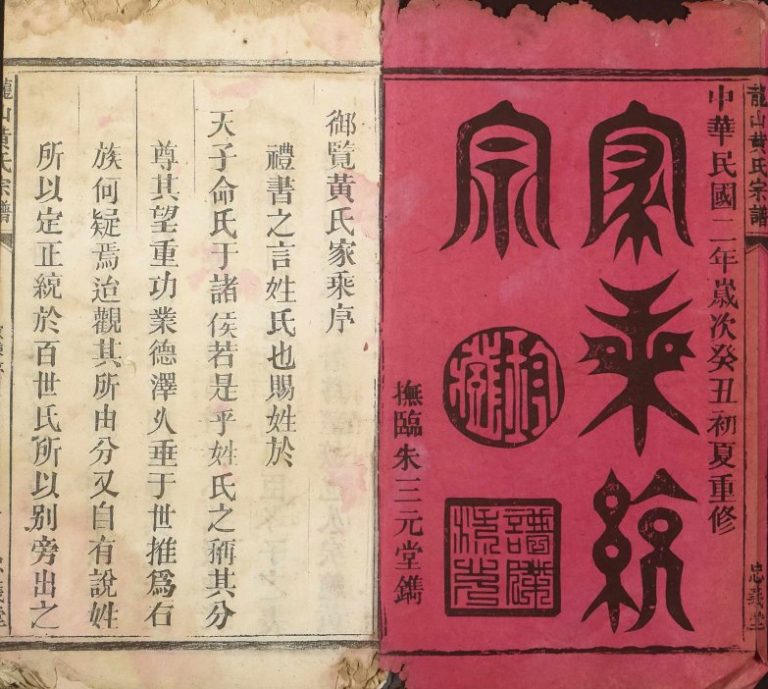 龍山黃氏宗譜
忠義堂
中華民國二年歲次癸丑初夏重修
家乘統
宗
撫臨朱三元堂鐫
御覽黃氏家乘序
禮書之言姓氏也賜姓於
天子命氏于諸侯若是乎姓氏之稱其分
尊其望重功業德澤乆垂于世推爲右
族何疑焉迨觀其所由分又自有說姓
所以定正統於百世氏所以别旁出之
龍山黃氏宗譜
忠義堂